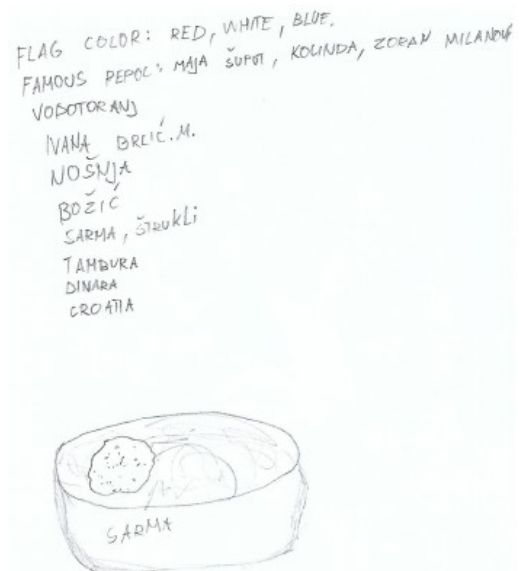 FLAG COLOR: RED, WHITE, BLUE.
FAMOUS PEPOL: MAJA ŠUPUT, KOLINDA, ZORAN MILANOVIĆ
VODOTORANJ
IVANA BRLIĆ.M.
NOŠNJA
BOŽIĆ
SARMA, ŠTRUKLI
TAMBURA
DINARA
CROATIA
SARMA